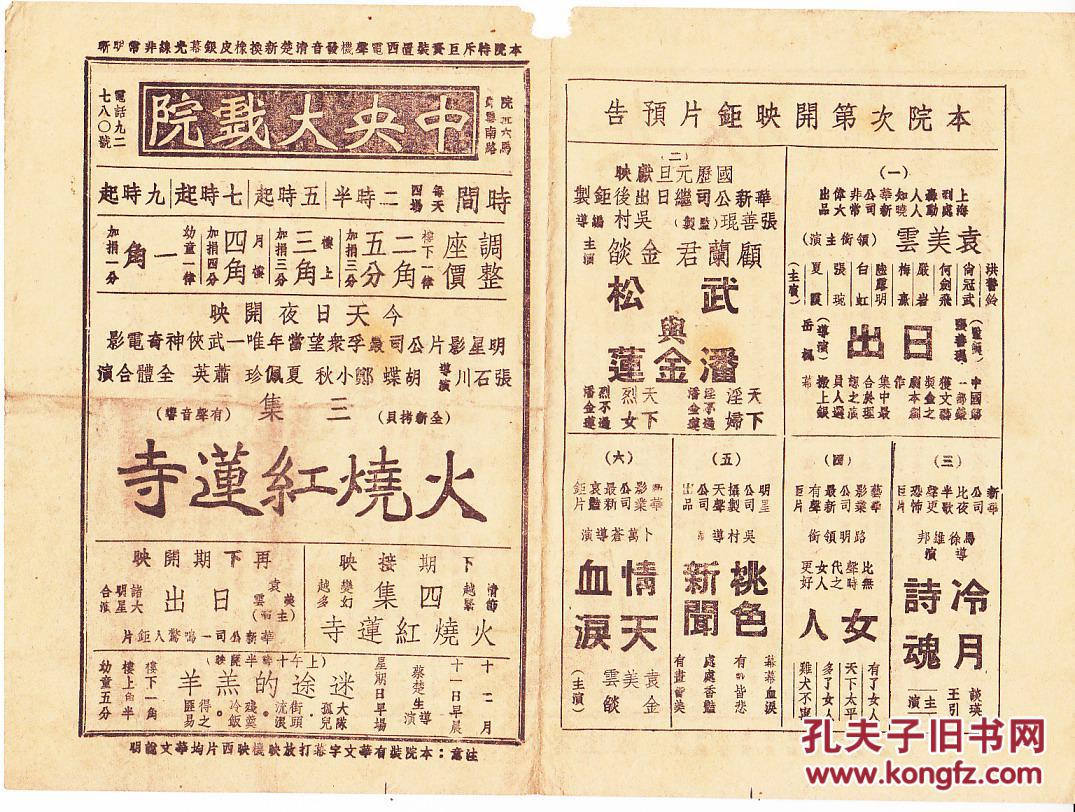 本院特斥巨資裝置西電聲機發音清楚新換橡皮銀幕光線非常明晰
中央大戲院
電話九二七八〇號
時間
每天四場
二時半
五時起
七時起
九時起
調整座價
樓下一律
二角五分
加捐三分
樓上
三角
加捐三分
月樓
四角
加捐四分
幼童一律
一角
加捐一分
今天日夜開映
明星影片公司最孚衆望當年唯一武俠神奇電影
張石川導演
胡蝶 鄭小秋 夏佩珍 蕭英 全體合演
(全新拷貝)
三集
(有聲音響)
火燒紅蓮寺
下期接映
情節越緊
四集
變幻越多
火燒紅蓮寺
再下期開映
袁美雲(主演)
日出
諸大明星合演
華新公司一鳴驚人鉅片
十二月十一日早晨
星期日早場
蔡楚生導演
(上午十時半開映)
迷途的羔羊
大隊孤兒
街頭流浪。
殘羹冷飯。
得之匪易
樓下一角
樓上角半
幼童五分
注意:本院裝有華文字幕打放映機映西片均華文說明
本院次第開映鉅片預告
(一)
上海到處轟動人人知曉
華新公司非常偉大出品
袁美雲
(領銜主演)
洪警鈴
尚冠武
何劍飛
嚴岩
梅熹
陸露明
白虹
張琬
夏霞
(主演)
日出
岳楓(導演)
中國第一部獲文藝獎金之劇本創作
集中最合於理想之演員人選搬上銀幕
(二)
國歷元旦獻映
華新公司繼日出後鉅製
張善琨(監製)
吳村編導
顧蘭君
金燄
主演
武松
與
潘金蓮
天下淫婦
淫不過潘金蓮
天下烈女
烈不過潘金蓮
(三)
新華公司
比夜半歌聲更恐怖巨片
馬徐維邦導演
冷月詩魂
談瑛
王引
主演
(四)
藝華影業公司最新有聲巨片
路明領銜
比無聲時代之女人更好
女人
有了女人
天下太平
多了女人
雞犬不寧
(五)
明星公司攝製天聲公司出品
吳村導
桃色新聞
幕幕血淚
有有皆悲
處處香豔
有畫皆美
(六)
新華影業公司最新哀豔鉅片
卜萬蒼導演
情天血淚
袁美雲
金燄
(主演)
孔夫子旧书网
www.kongfz.com